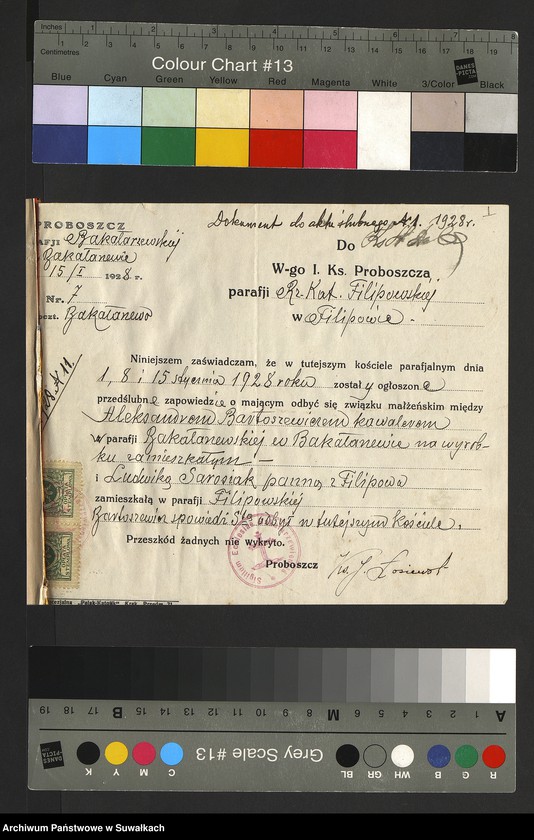 Inches 1 2 3 4 5 6 7 8
Centimetres 1 2 3 4 5 6 7 8 9 10 11 12 13 14 15 16 17 18 19
Colour Chart #13
Blue Cyan Green Yellow Red Magenta White 3/Color Black
DANES PICTA
Dokument do aktu ślubnego № 1. 1928 r.
PROBOSZCZ
AFJI Bakałarzewskiej
Bakałarzewie
15/I 1928 r.
Nr. 7
poczt. Bakałarzewo
Do
W-go I. Ks. Proboszcza
parafji Rz. Kat. Filipowskiej
w Filipowie.
Niniejszem zaświadczam, że w tutejszym kościele parafjalnym dnia
1, 8 i 15 stycznia 1928 roku został y ogłoszon e
przedślubne zapowiedzie o mającym odbyć się związku małżeńskim między
Aleksandrem Bartoszewiczem kawalerem
z parafji Bakałarzewskiej w Bakałarzewie na wyrob-
ku zamieszkałym —
i Ludwiką Sarosiak panną z Filipowa
zamieszkałą w parafji Filipowskiej
Bartoszewicz spowiedź Stą odbył w tutejszym Kościele.
Przeszkód żadnych nie wykryto.
Proboszcz
Sigillum Ecclesiae
A 1 2 3 4 5 6 M 8 9 10 11 12 13 14 15 B 17 18 19
Grey Scale #13
R G B WH GR BL C M Y K
DANES PICTA
Archiwum Państwowe w Suwałkach